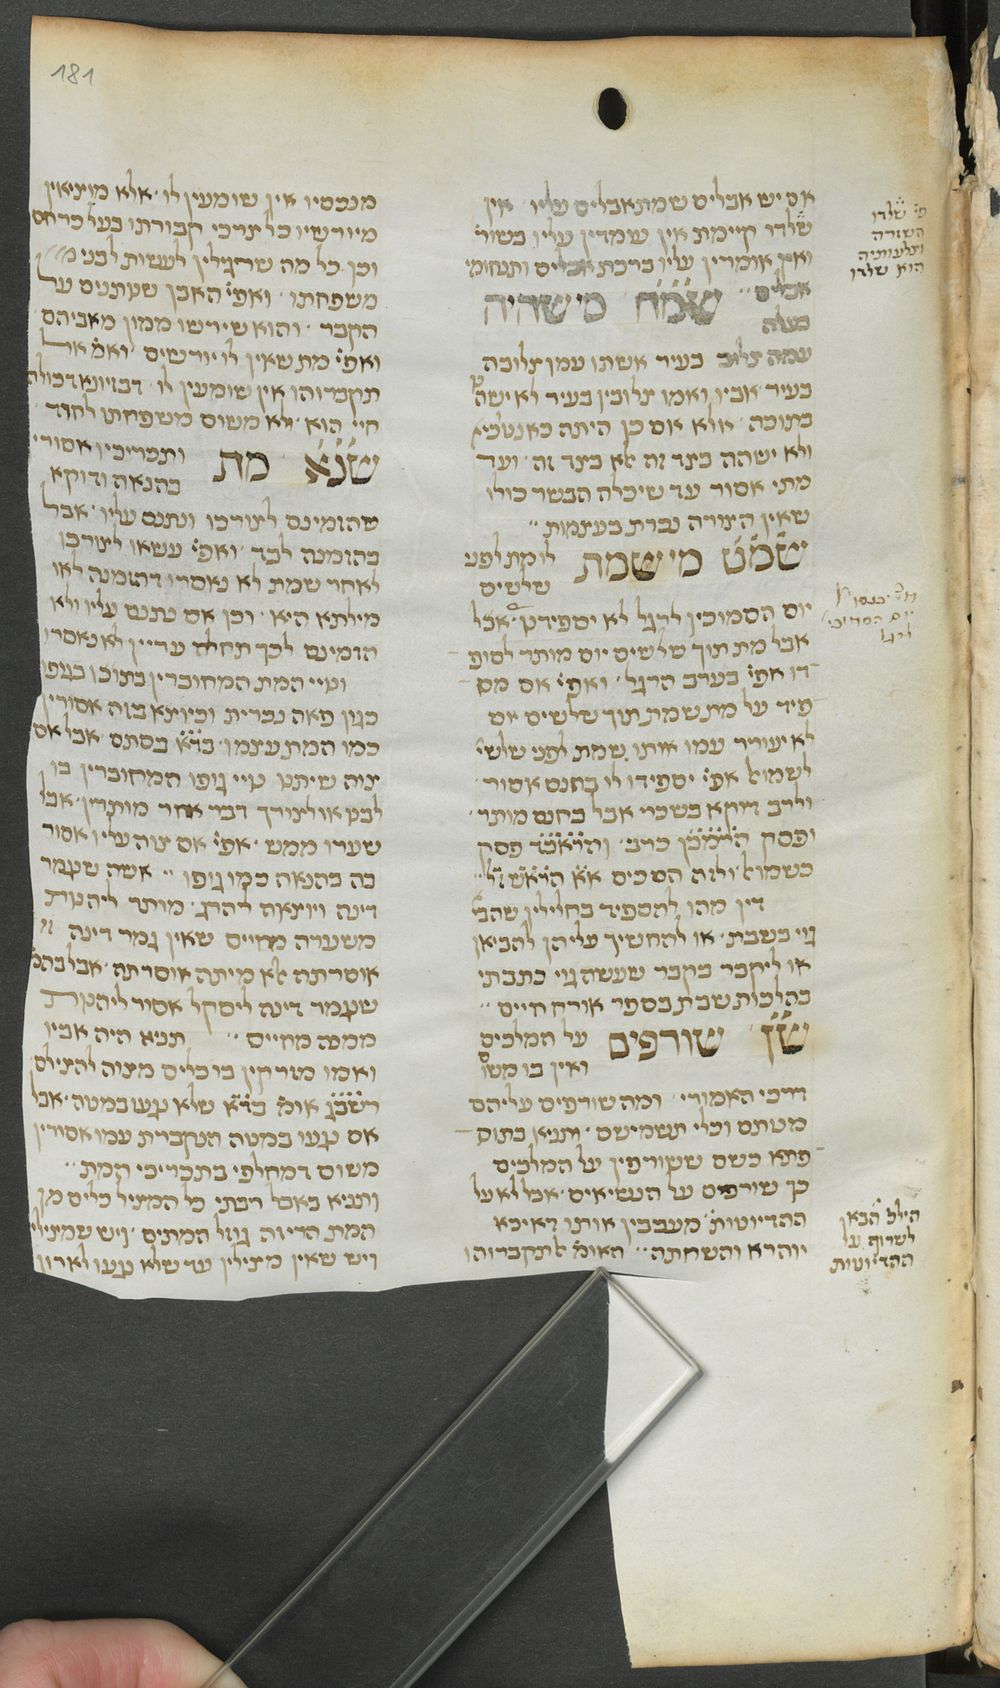 181
אם יש אבלים שמתאבלים עליו אין
שלדו קיימת אין עומדין עליו בשורה
ואין אומרין עליו ברכת אבלים ותנחומי
אבלים
שמח מי שהיה
עמה קלוב בעיר אשתו עמו קלובה
בעיר אביו ואמו קלובין בעיר לא ישהה
בתוכה אלא אם כן היתה כאנטכיא
ולא ישהה בצד זה אלא בצד זה ועד
מתי אסור עד שיכלה הבשר כולו
שאין הצורה נכרת בעצמות
שמט מי שמת
לו מת לפני
שלשים
יום הסמוכין לרגל לא יספידנו אבל
אבל מת תוך שלשים יום מותר לסופ
דו אפי׳ בערב הרגל ואפי׳ אם מס
פיד על מת שמת תוך שלשים יום
לא יעורר עמו אותו שמת לפני שלשי׳
לשמואל אפי׳ יספידו לו בחנם אסור
ולרב דוקא בשכר אבל בחנם מותר
ופסק הרמב״ן כרב והראב״ד פסק
כשמואל ולזה הסכים א״א הרא״ש ז״ל
דין מהו להספיד בחלילין שהביא
גוי בשבת או להחשיך עליהן להביאן
או ליקבר בקבר שעשה גוי כתבתי
בהלכות שבת בספר אורח חיים
שן שורפים
על המלכים
ואין בו משו׳
דרכי האמורי ומה שורפים עליהם
מטתם וכלי תשמישם ותניא בתוס
פתא כשם ששורפין על המלכים
כך שורפים על הנשיאים אבל לא על
ההדיוטות מעכבין אותו דאיכא
יוהרא והשחתה האומ׳ אל תקברוהו
מנכסיו אין שומעין לו אלא מוציאין
מיורשיו כל צרכי קבורתו בעל כרחם
וכן כל מה שרגילין לעשות לבני
משפחתו ואפי׳ האבן שנותנים על
הקבר והוא שירשו ממון מאביהם
ואפי׳ מת שאין לו יורשים ואמ׳ אל
תקברוהו אין שומעין לו דבזיונא דכולהו
חיי הוא ולא משום משפחתו לחוד
שנא מת
ותכריכיו אסורי׳
בהנאה ודוקא
שהזמינם לצורכו ונתנם עליו אבל
בהזמנה לבד ואפי׳ עשאו לצורכו
לאחר שמת לא נאסרו דהזמנה לאו
מילתא היא וכן אם נתנם עליו ולא
הזמינם לכך תחלה עדיין לא נאסרו
ונויי המת המחוברין בתוכו בגופו
כגון פאה נכרית וכיוצא בזה אסורין
כמו המת עצמו בד״א בסתם אבל אם
צוה שיתנו נויי גופו המחוברין בו
לבנו או לצורך דבר אחר מותרין אבל
שערו ממש אפי׳ אם צוה עליו אסור
בה בהנאה כמו גופו אשה שנגמר
דינה ויוצאה ליהרג מותר ליהנות
משערה מחיים שאין גמר דינה
אוסרתה אלא מיתה אוסרתה אבל בהמ׳
שנגמר דינה ליסקל אסור ליהנות
ממנה מחיים תניא היה אביו
ואמו מזרקין בו כלים מצוה להצילם
רשב״ג אומ׳ בד״א שלא נגעו במטה אבל
אם נגעו במטה הנקברת עמו אסורין
משום דמחלפי בתכריכי המת
ותניא באבל רבתי כל המציל כלים מן
המת הרי זה גוזל המתים ויש שמצילין
ויש שאין מצילין עד שלא נגעו לארון
פי׳ שלדו
השזרה
וצלעותיה
הוא שלדו
הילך הבאן
לשרוף על
ההדיוטות